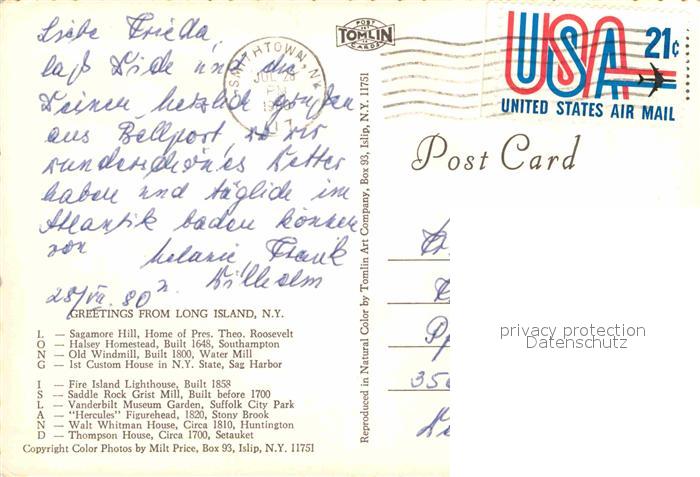 Liebe Frieda,
laß Dich und die
Deinen herzlich grüßen
aus Bellport, wo wir
wunderschönes Wetter
haben und täglich im
Atlantik baden können
von Melanie, Frank
u. Wilhelm
28/VII. 80
POST
TOMLIN
CARDS
SMITHTOWN, N.Y.
JUL 28
PM
117
USA 21¢
UNITED STATES AIR MAIL
Post Card
GREETINGS FROM LONG ISLAND, N.Y.
L — Sagamore Hill, Home of Pres. Theo. Roosevelt
O — Halsey Homestead, Built 1648, Southampton
N — Old Windmill, Built 1800, Water Mill
G — 1st Custom House in N.Y. State, Sag Harbor
I — Fire Island Lighthouse, Built 1858
S — Saddle Rock Grist Mill, Built before 1700
L — Vanderbilt Museum Garden, Suffolk City Park
A — "Hercules" Figurehead, 1820, Stony Brook
N — Walt Whitman House, Circa 1810, Huntington
D — Thompson House, Circa 1700, Setauket
Copyright Color Photos by Milt Price, Box 93, Islip, N.Y. 11751
Reproduced in Natural Color by Tomlin Art Company, Box 93, Islip, N.Y. 11751
privacy protection
Datenschutz